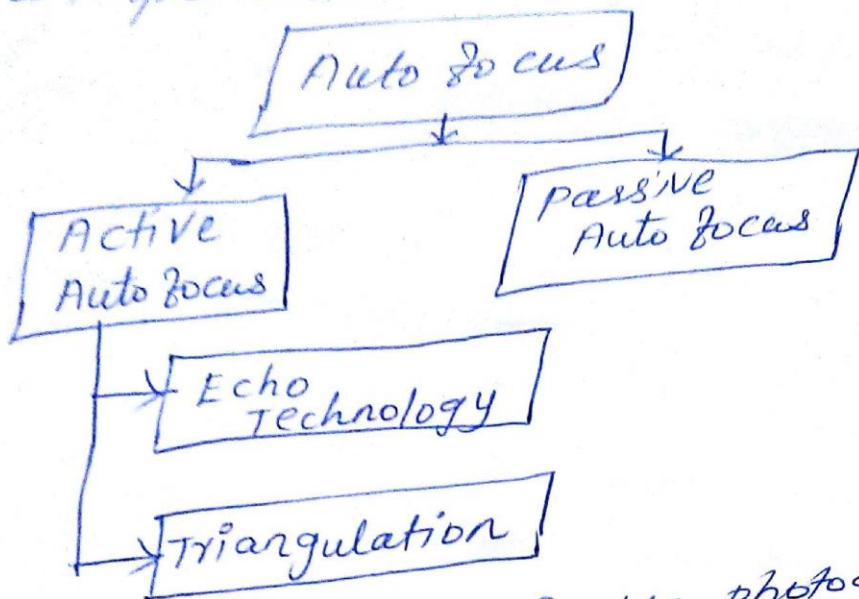 Auto focus
Active
Auto focus
Passive
Auto focus
Echo
Technology
Triangulation